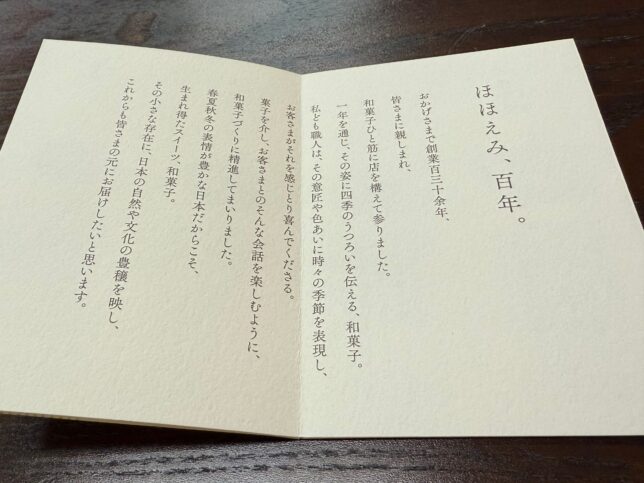 ほほえみ、百年。
おかげさまで創業百三十余年、
皆さまに親しまれ、
和菓子ひと筋に店を構えて参りました。
一年を通じ、その姿に四季のうつろいを伝える、和菓子。
私ども職人は、その意匠や色あいに時々の季節を表現し、
お客さまがそれを感じとり喜んでくださる。
菓子を介し、お客さまとのそんな会話を楽しむように、
和菓子づくりに精進してまいりました。
春夏秋冬の表情が豊かな日本だからこそ、
生まれ得たスイーツ、和菓子。
その小さな存在に、日本の自然や文化の豊穣を映し、
これからも皆さまの元にお届けしたいと思います。